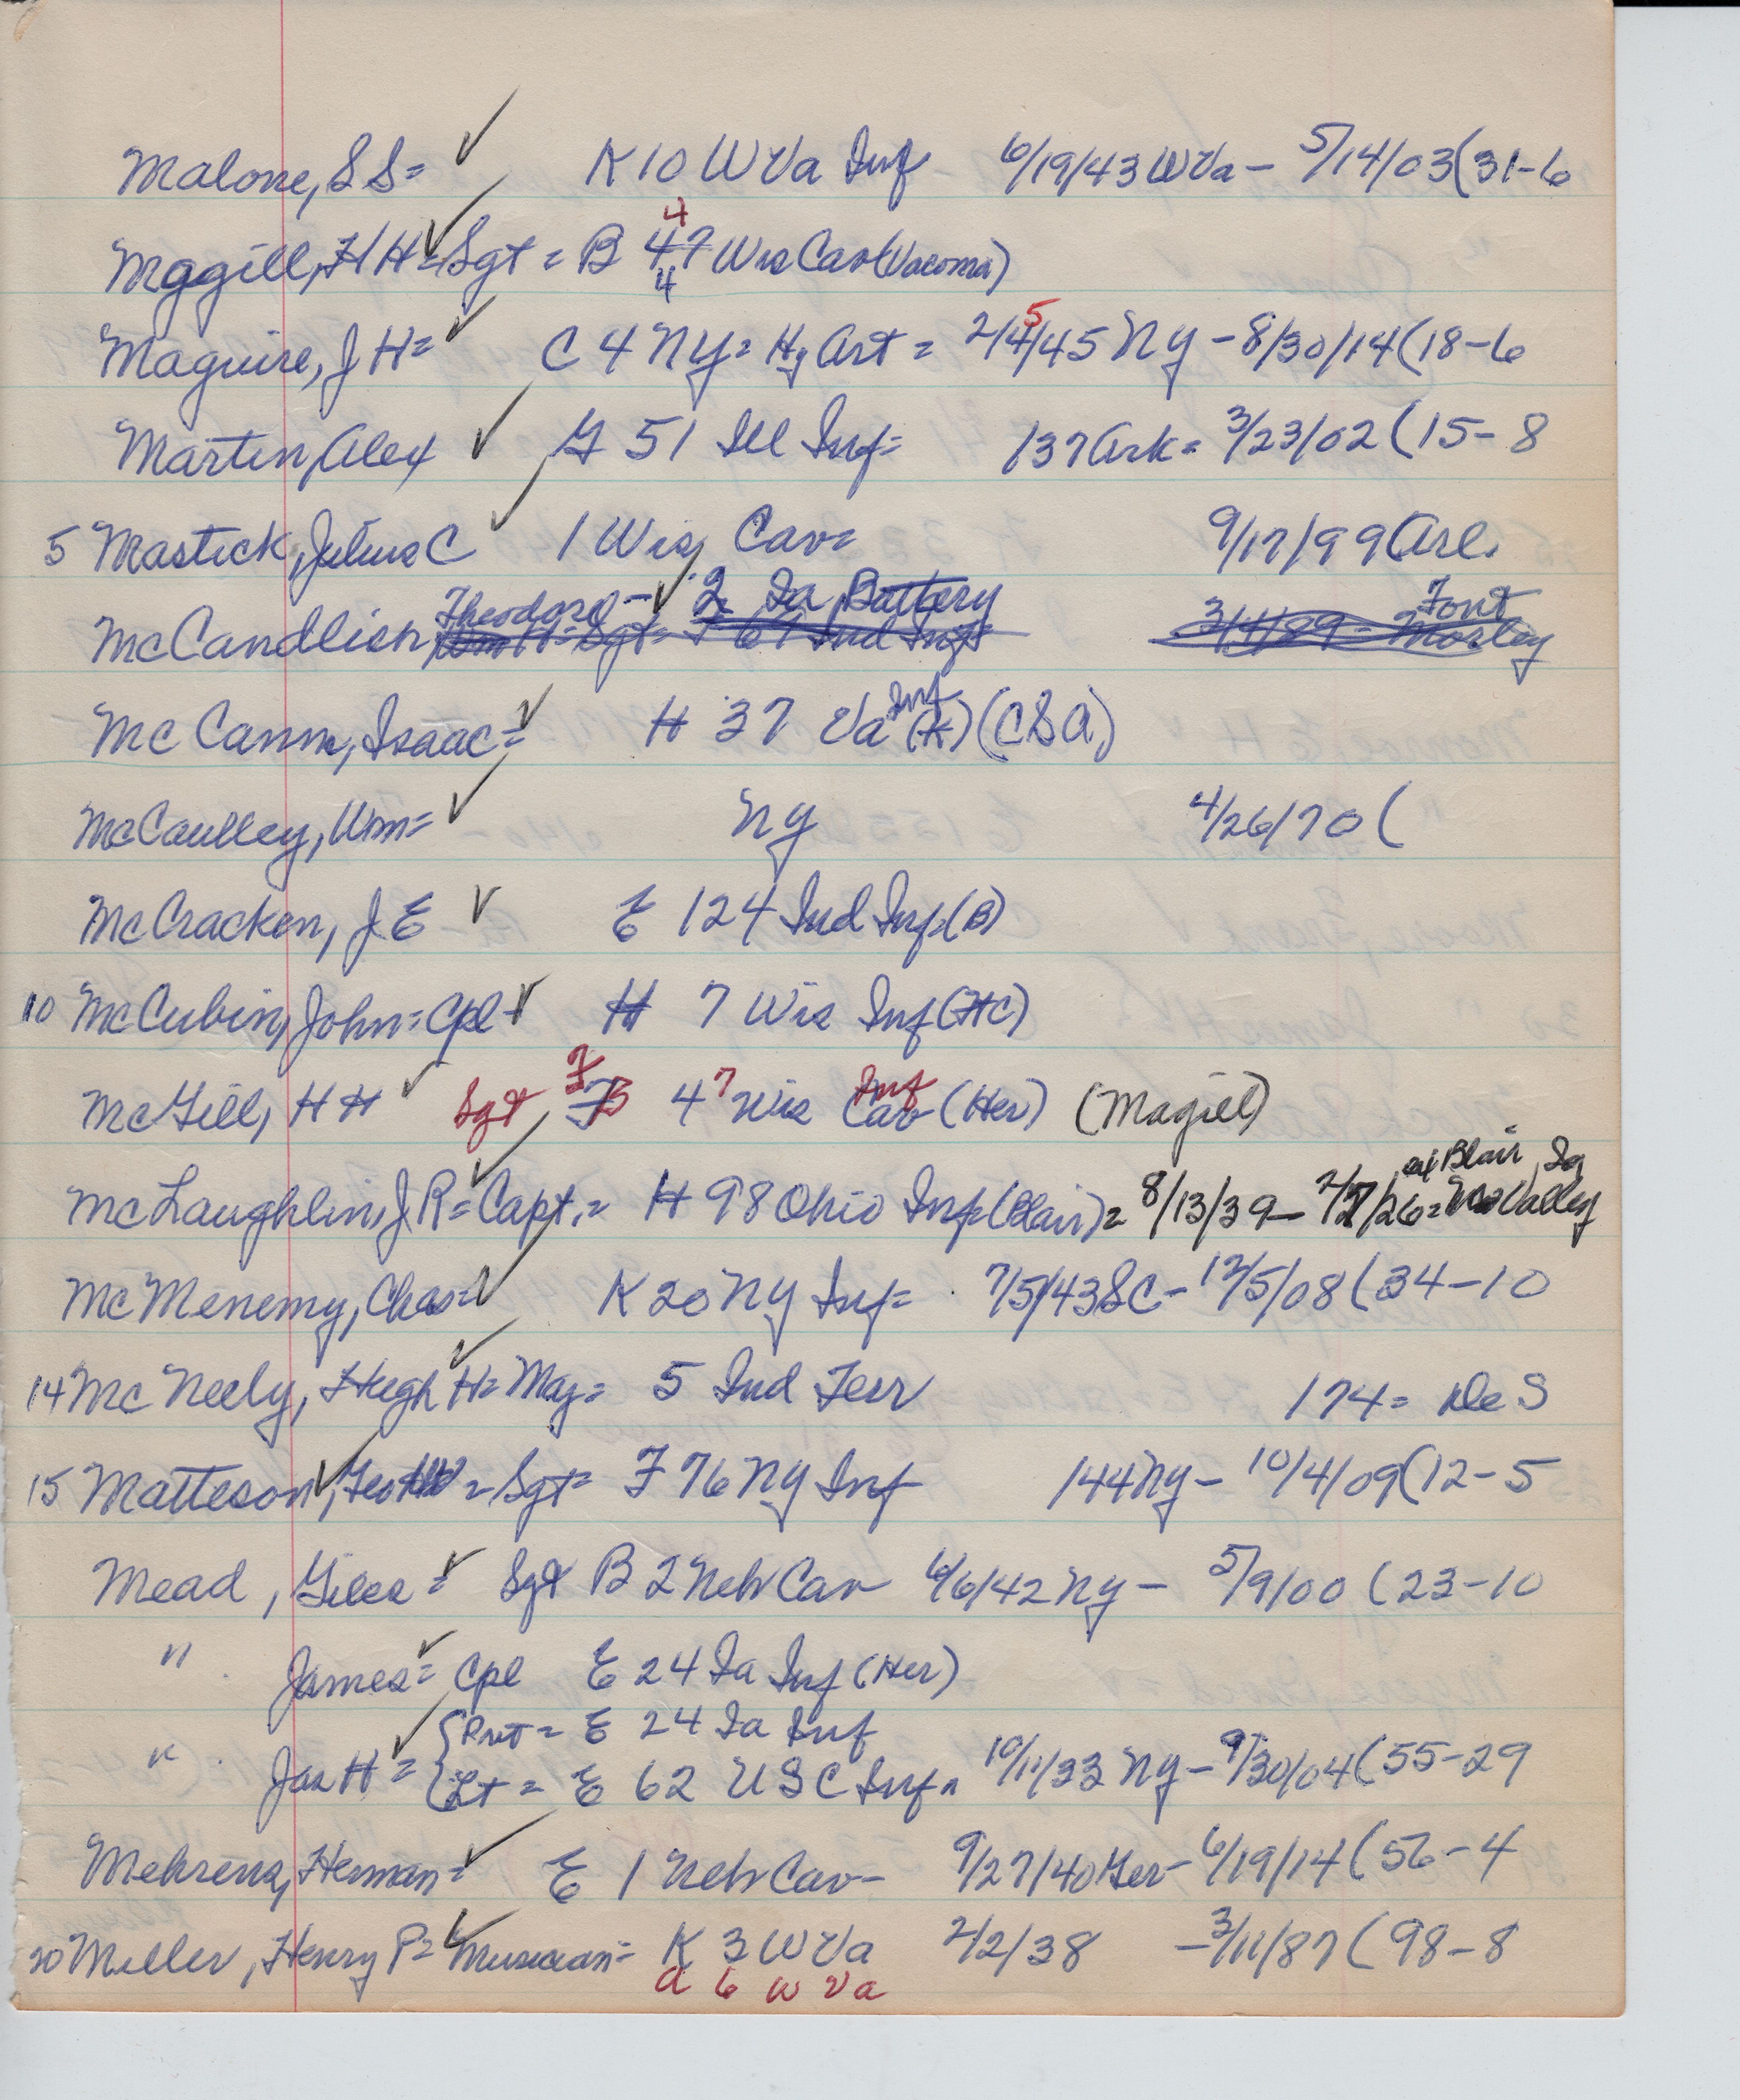 Malone, S S = ✓ K 10 W Va Inf 6/19/43 W Va - 5/14/03 (31-6
4
Mggill, H H = ✓ Sgt = B 47 Wis Cav (Vacoma)
4
5
Maguire, J H = ✓ C 4 NY = Hy Art = 2/4/45 NY - 8/30/14 (18-6
Martin, Alex ✓ G 51 Ill Inf = 137 Ark = 3/23/02 (15-8
5 Mastick, Julius C ✓ 1 Wis Cav = 9/17/99 (Arl.
Theodore - ✓ 2 Ia Battery Font
McCandlish Wm H = Sgt = F 67 Ind Inft 3/4/89 - Mosley
Inf
McCann, Isaac = ✓ H 37 Va (K) (CSA)
McCaulley, Wm = ✓ NY 4/26/70 (
McCracken, J E ✓ E 124 Ind Inf (B)
10 McCubin, John = Cpl ✓ H 7 Wis Inf (HC)
F 7 Inf
McGill, H H ✓ Sgt B 4 Wis Cav (Her) (Magill)
at Blair, Ia
McLaughlin, J R = ✓ Capt. = H 98 Ohio Inf (Blair) = 8/13/39 - 2/27/26 = Valley
McMenemy, Chas = ✓ K 20 NY Inf = 7/5/43 SC - 12/5/08 (34-10
14 McNeely, Hugh H = ✓ Maj = 5 Ind Terr 174 = De S
15 Matteson, Geo W = Sgt = F 76 NY Inf 144 NY - 10/4/09 (12-5
Mead, Giles = ✓ Sgt B 2 Neb Cav 6/6/42 NY - 5/9/00 (23-10
" James = ✓ Cpl E 24 Ia Inf (Her)
{Pvt = E 24 Ia Inf
" Jas H = ✓ {Lt = E 62 USC Inf = 10/11/33 NY - 9/30/04 (55-29
Mehrens, Herman = ✓ E 1 Neb Cav - 9/27/40 Ger - 6/19/14 (56-4
20 Miller, Henry P = ✓ Musician = K 3 W Va 2/2/38 - 3/11/87 (98-8
a 6 W Va